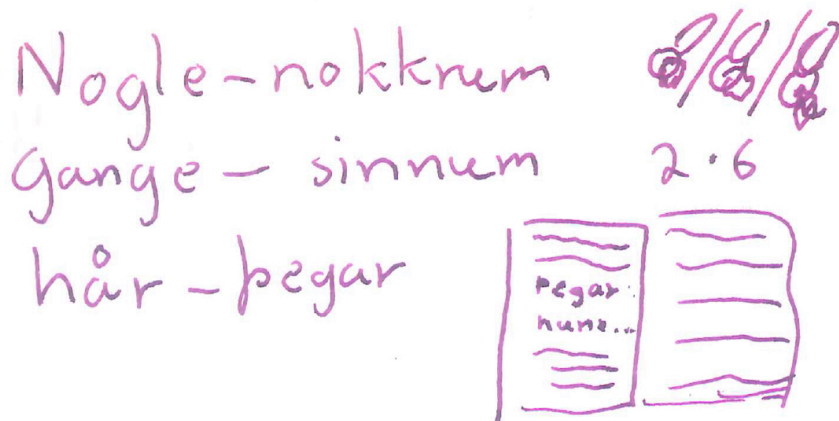 Nogle - nokkrum
gange - sinnum
2 · 6
hår - þegar
þegar
hund...